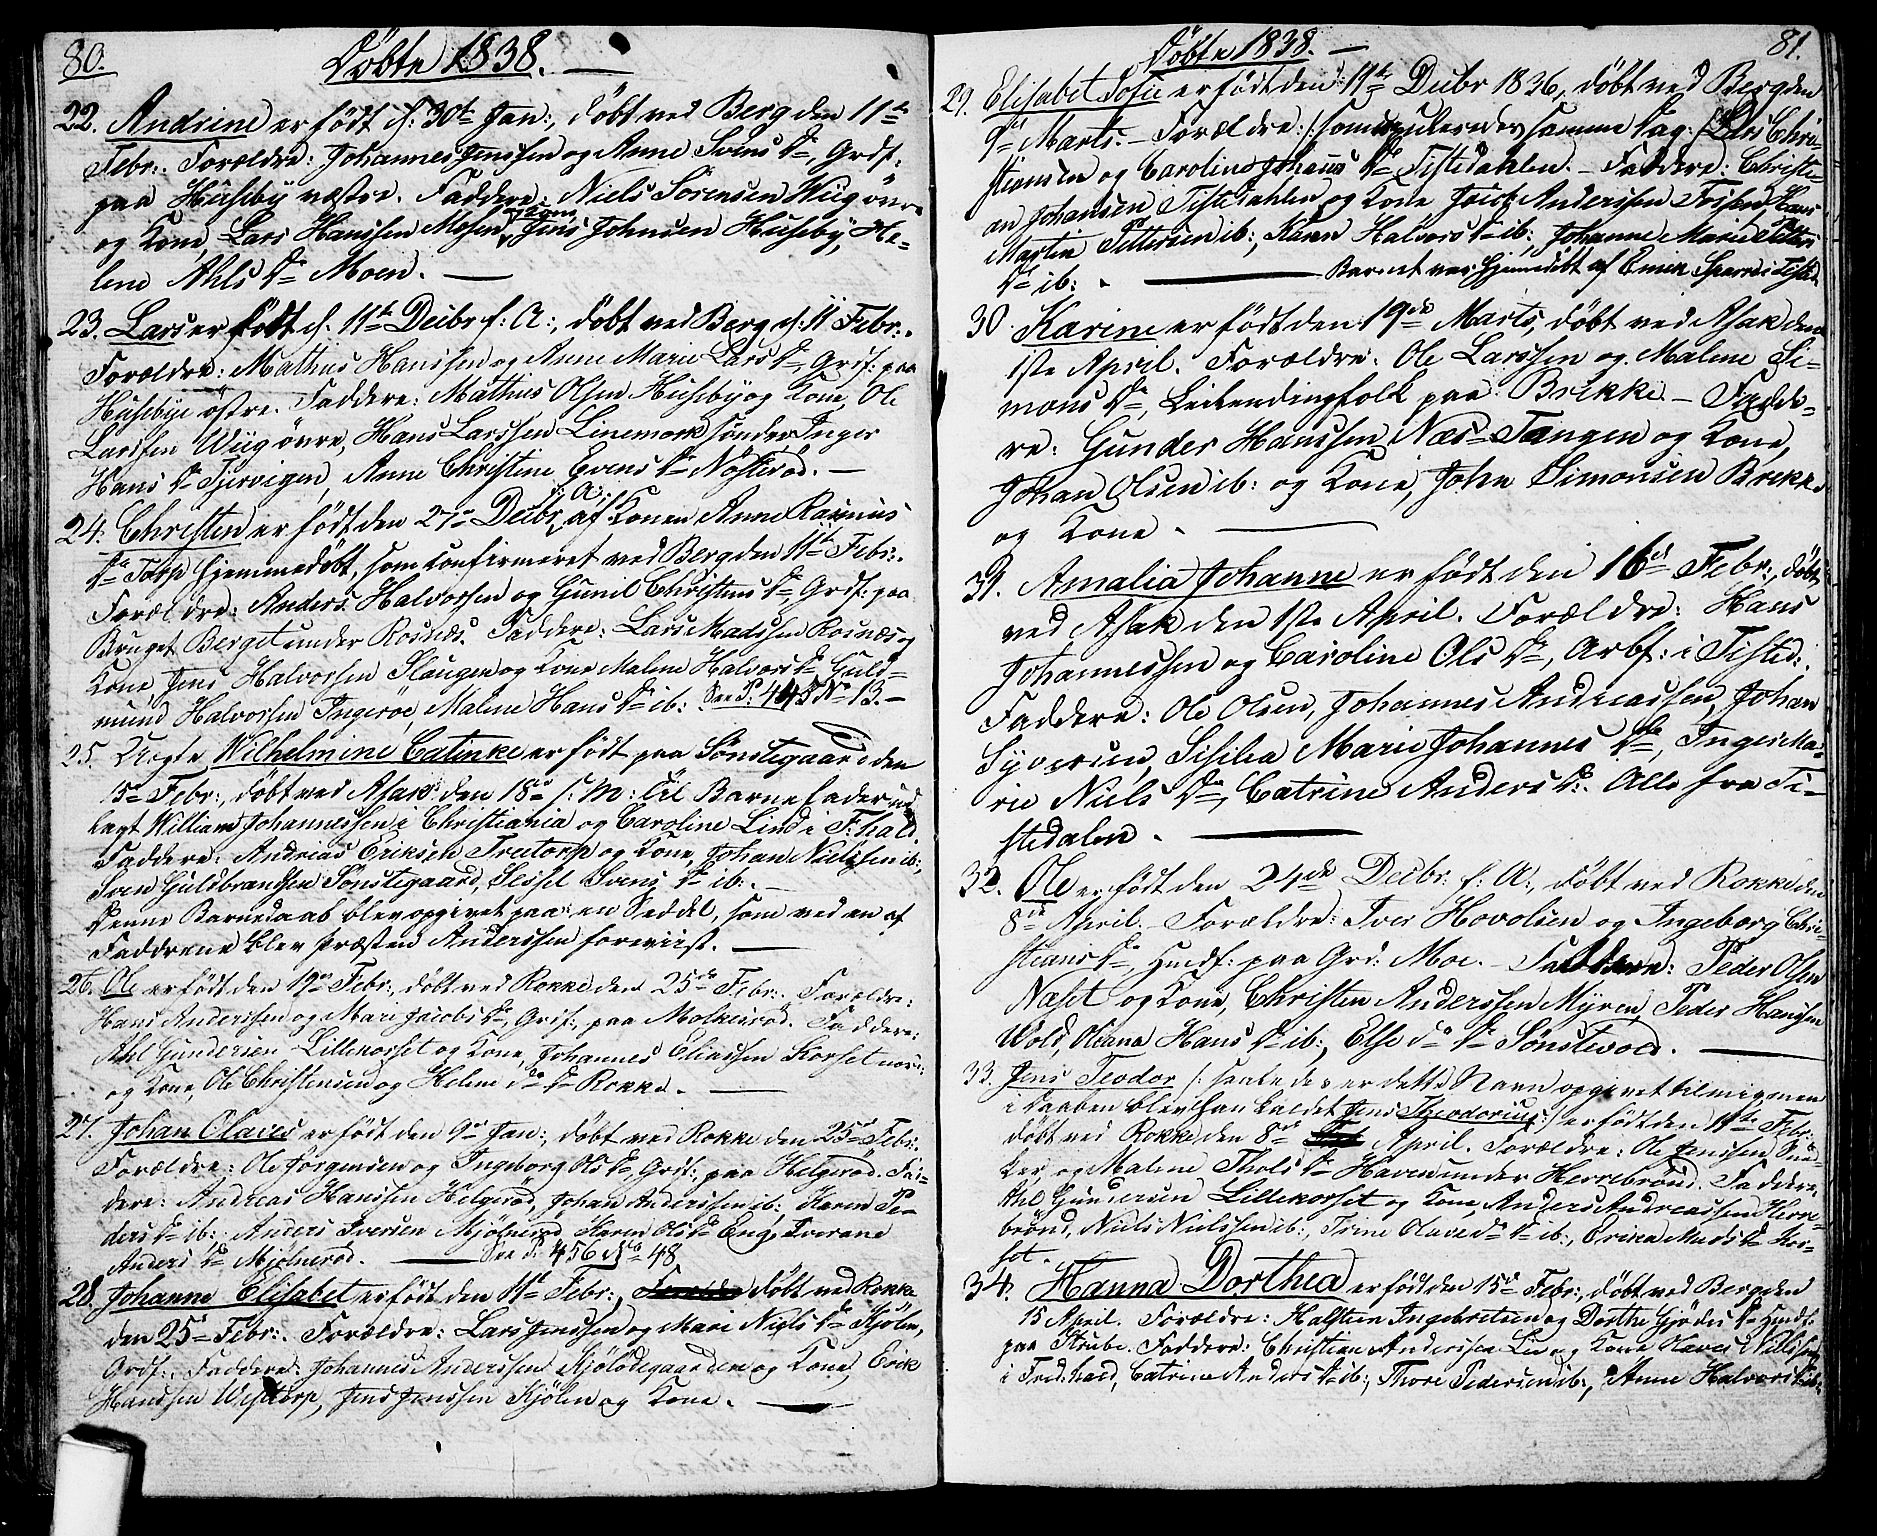 80.
Döbte 1838.
22. Andrine er födt d: 30te Jan:, döbt ved Berg den 11te
Febr:. Forældre: Johannes Jenssen og Anne Svens Dr, Grdf:
paa Huseby væstre. Faddere: Niels Sörensen Wiig övre
og Kone, Lars Hanssen Mosen, Jens Johnsen Huseby, He-
lene Ahls Dr Moen.
23. Lars er födt d: 11te Decbr f: A:, döbt ved Berg d: 11 Febr:.
Forældre: Mathias Hanssen og Anne Marie Lars Dr, Grdf: paa
Husebye östre. Faddere: Mathias Olsen Huseby og Kone, Ole
Larssen Wiig övre, Hans Larssen Linemork söndre, Inger
Hans Dr Tjervigen, Anne Christine Evens Dr Nösteröd.
24. Christen er födt den 27de Decbr f: A: af Konen Anne Rasmus
Dr Torp hjemmedöbt, som confirmeret ved Berg den 11te Febr:.
Forældre: Anders Halvorssen og Gunil Christens Dr, Grdf: paa
Bruget Berget under Rosnæs. Faddere: Lars Madssen Rosnæs og
Kone, Jens Halvorssen Slaugen og Kone, Malene Halvors Dr, Guld-
mund Halvorssen Ingeröe, Malene Hans Dr ib: See P: 445 No 13.
25. Uægte Wilhelmine Catinke er födt paa Sönstegaard den
15de Febr:, döbt ved Asak den 18de s: M: til Barnefader ud
lagt William Johannessen i Christiania og Caroline Lind i F:hald.
Faddere: Andreas Eriksen Treetorp og Kone, Johan Nielssen ib:,
Sven Guldbrandsen Sönstegaard, Sessel Svens Dr ib:.
Denne Barnedaab blev opgivet paa en Seddel, som ved en af
Faddrene blev Præsten Anderssen foreviist.
26. Ole er födt den 19de Febr:, döbt ved Rokke den 25de Febr:. Forældre:
Hans Anderssen og Mari Jacobs Dr, Grdf:, paa Molkeröd. Faddere:
Ahl Gundersen Lillekorset og Kone, Johannes Eliassen Korset nordr:
og Kone, Ole Christensen og Helene do Dr Rokke.
27. Johan Olaves er födt den 9de Jan:, döbt ved Rokke den 25de Febr:.
Forældre: Ole Jörgensen og Ingeborg Ols Dr, Grdf:, paa Helgeröd. Fad-
dere: Andreas Hanssen Helgeröd, Johan Anderssen ib:, Karen Pe-
ders Dr ib:, Anders Iversen Mjölneröd, Karen Ols Dr Eng, Iverane
Anders Dr Mjölneröd. See P: 456 No 48
28. Johanne Elisabet er födt den 11te Febr:, döbt ved Rokke
den 25de Febr:. Forældre: Lars Jenssen og Mari Niels Dr Kjölen,
Grdf:. Faddere: Johannes Anderssen Kjölödegaarden og Kone, Erik
Hanssen Westtorp, Jens Jenssen Kjölen og Kone.
81.
Döbte 1838.
29. Elisabet Sofie er födt den 11te Decbr 1836, döbt ved Berg den
9de Marts. Forældre: Lars Chri-
stiansen og Caroline Johanns Dr Tistedahlen. Faddere: Christi-
an Johansen Tistedahlen og Kone, Jacob Anderssen Fossen, Hans
Martin Pettersen ib:, Karen Halvors Dr ib:, Johanne Marie Petters
Dr ib:. Barnet var hjemdöbt af Emich Sparre i Tisted:
30. Karine er födt den 19de Marts, döbt ved Asak den
1ste April. Forældre: Ole Larssen og Malene Si-
mons Dr, Leilendingfolk paa Brekke. Fadde-
re: Gunder Hanssen Næs-Tangen og Kone,
Johan Olsen ib: og Kone, John Simonsen Brekke
og Kone.
31. Amalia Johanne er födt den 16de Febr:, döbt
ved Asak den 1ste April. Forældre: Hans
Johannessen og Caroline Ols Dr, Arbf: i Tisted:.
Faddere: Ole Olsen, Johannes Andreassen, Johan
Syversen, Sesilia Marie Johannes Dr, Inger Ma-
rie Niels Dr, Catrine Anders Dr. Alle fra Ti-
stedalen.
32. Ole er födt den 24de Decbr: f: A:, döbt ved Rokke den
8de April. Forældre: Iver Hovolsen og Ingeborg Chri-
stians Dr, Husf: paa Grd: Moe. Faddere: Peder Olsen
Næset og Kone, Christen Anderssen Myren, Peder Hanssen
Wold, Oleana Hans Dr ib:, Else do Dr Sönstevold.
33. Jens Teodor /: saaledes er dette Navn opgivet til mig, men
i Daaben blev han kaldet Jens Theodorius:/ er födt den 11te Febr:
döbt ved Rokke den 8de April. Forældre: Ole Jenssen Sned-
ker, og Malene Thols Dr Haven under Herrebrönd. Faddere:
Ahl Gundersen Lillekorset og Kone, Anders Andreassen Herre-
brönd, Niels Nielssen ib:, Trine Olave do Dr ib:, Erika Mads Dr Kor-
set.
34. Hanna Dorthea er födt den 15de Febr:, döbt ved Berg den
15 April. Forældre: Halsten Ingebretsen og Dorthe Gjödes Dr Husf:
paa Strube. Faddere: Christian Anderssen Lie og Kone, Olaves Nilssen
i Fredhald, Catrine Anders Dr ib:, Thore Pedersen ib:, Anne Halvors Dr ib: